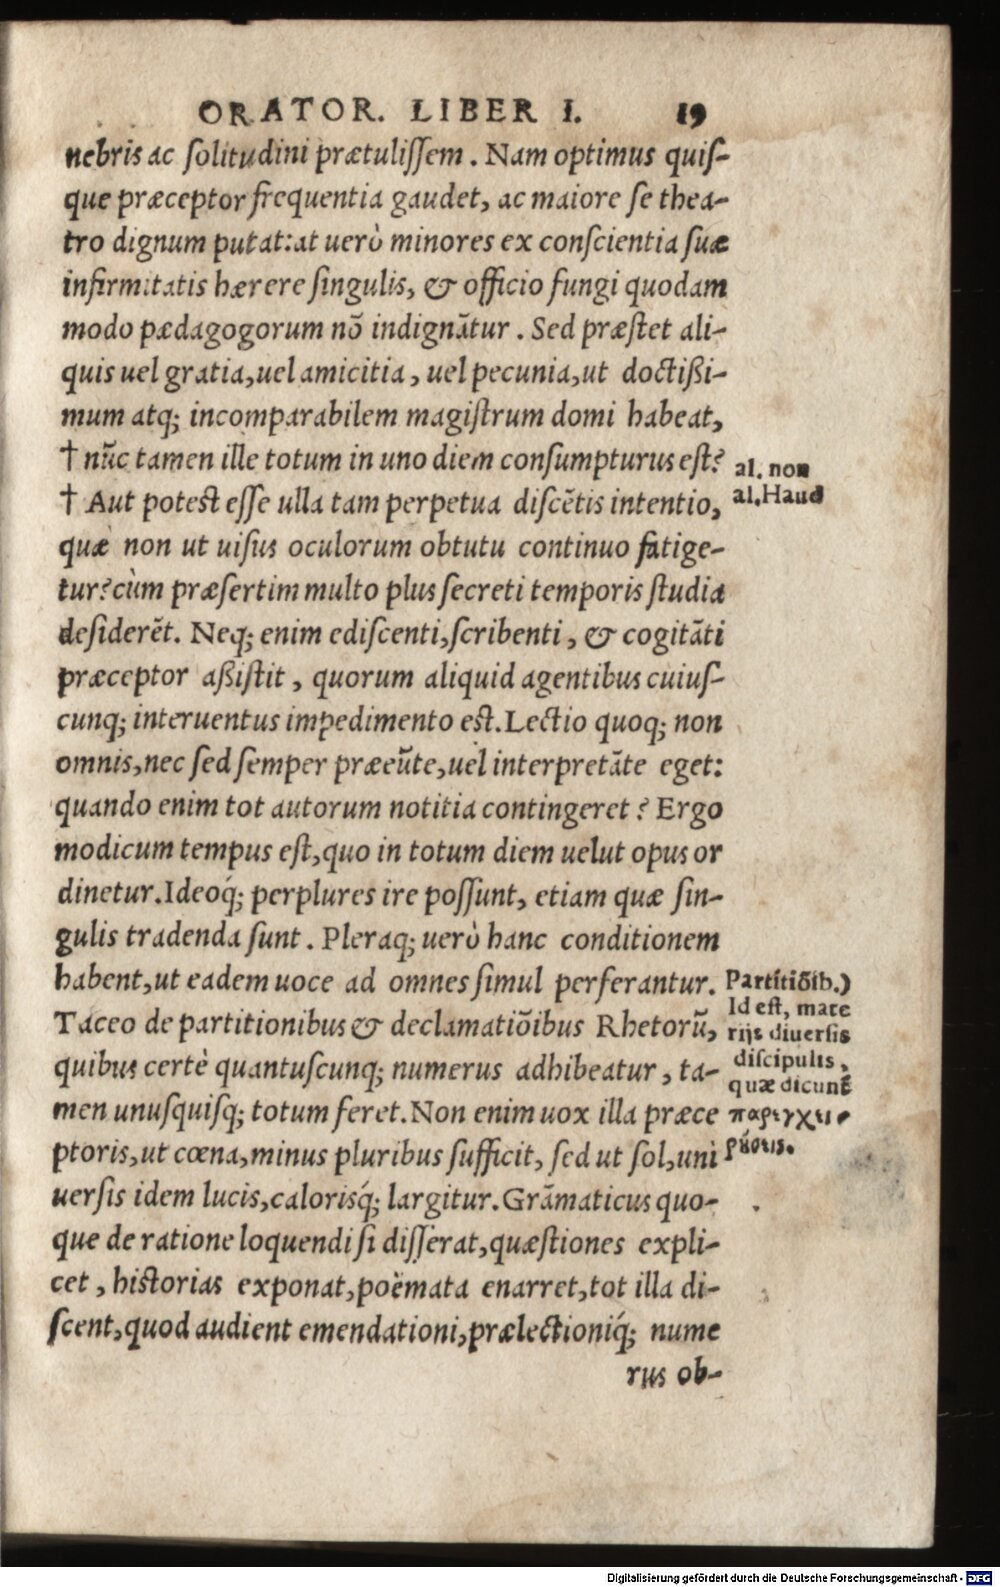 ORATOR. LIBER I. 19
nebris ac ſolitudini prætuliſſem. Nam optimus quiſ-
que præceptor frequentia gaudet, ac maiore ſe thea-
tro dignum putat: at uerò minores ex conſcientia ſuæ
infirmitatis hærere ſingulis, & officio fungi quodam
modo pædagogorum nō indignātur. Sed præſtet ali-
quis uel gratia, uel amicitia, uel pecunia, ut doctißi-
mum atq; incomparabilem magiſtrum domi habeat,
† nūc tamen ille totum in uno diem conſumpturus eſt?
al. non
† Aut potest eſſe ulla tam perpetua diſcētis intentio,
al. Haud
quæ non ut uiſus oculorum obtutu continuo fatige-
tur? cùm præſertim multo plus ſecreti temporis ſtudia
deſiderēt. Neq; enim ediſcenti, ſcribenti, & cogitāti
præceptor aßiſtit, quorum aliquid agentibus cuiuſ-
cunq; interuentus impedimento eſt. Lectio quoq; non
omnis, nec ſed ſemper præeūte, uel interpretāte eget:
quando enim tot autorum notitia contingeret? Ergo
modicum tempus eſt, quo in totum diem uelut opus or
dinetur. Ideoq́; perplures ire poſſunt, etiam quæ ſin-
gulis tradenda ſunt. Pleraq; uerò hanc conditionem
habent, ut eadem uoce ad omnes ſimul perferantur.
Taceo de partitionibus & declamatiōibus Rhetorū,
quibus certè quantuscunq; numerus adhibeatur, ta-
men unuſquiſq; totum feret. Non enim uox illa præce
ptoris, ut cœna, minus pluribus ſufficit, ſed ut ſol, uni
uerſis idem lucis, calorisq́; largitur. Grāmaticus quo-
que de ratione loquendi ſi diſſerat, quæſtiones expli-
cet, historias exponat, poëmata enarret, tot illa di-
ſcent, quod audient emendationi, prælectioniq́; nume
rus ob-
Partitiōib.)
Id eſt, mate
rijs diuerſis
diſcipulis,
quæ dicunt̄